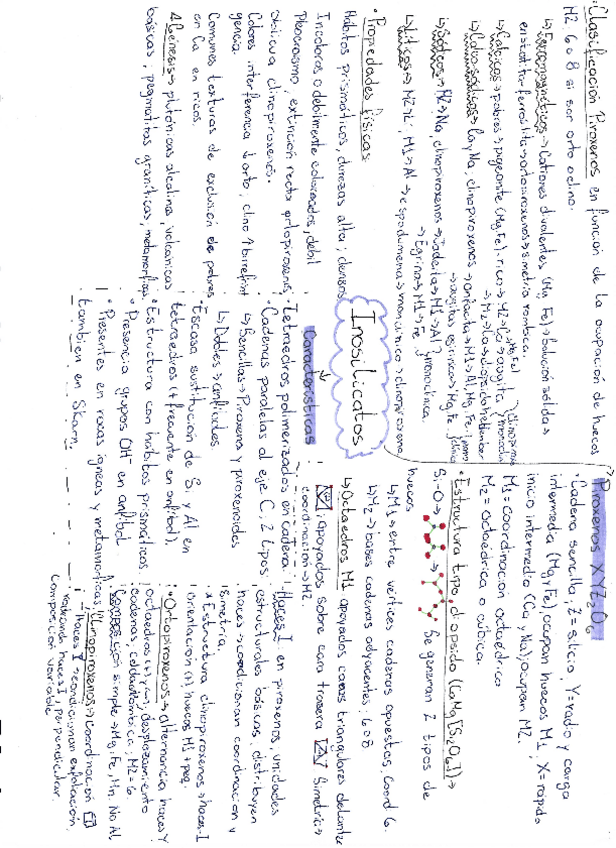 Inosilicatos
Características
· Tetraedros polimerizados en cadena
· Cadenas paralelas al eje C, 2 tipos
↳ Sencillas → Piroxeno y piroxenoides
↳ Dobles → anfíboles.
· Escasa sustitución de Si y Al en
tetraedros (+ frecuente en anfíbol).
· Estructura con hábitos prismáticos
· Presencia grupos OH⁻ en anfíbol.
· Presentes en rocas ígneas y metamórficas,
también en Skarn.
Piroxenos XYZ₂O₆
· Cadena sencilla, Z = silicio, Y = radio y carga
intermedia (Mg y Fe), ocupan huecos M1, X = rapido
inicio intermedia (Ca y Na) ocupan M2.
M1 = Coordinación octaédrico
M2 = Octaédrica o cúbica.
· Estructura tipo, diopsido (CaMg[Si₂O₆]) →
Si-O → Se generan 2 tipos de
huecos
↳ M1 → entre vértices cadenas opuestas. Coord 6.
↳ M2 → bases cadenas adyacentes. 6 o 8
↳ Octaedros M1 apoyados caras triangulares delante
, apoyados sobre cara trasera. Simetría →
coordinación → M2.
Haces I: en piroxenos, unidades
estructurales básicas, distribuyen
haces → condicionan coordinación y
simetría.
* Estructura clinopiroxenos → haces I
orientación (+) huecos M1 + peq.
· Ortopiroxenos → alternancia haces Y
octaedros (+), (-), desplazamiento
cadenas, celda rómbica; M2 = 6.
simple → Mg, Fe, Mn. No Al
· Clinopiroxenos → Coordinación
· Haces → condicionan exfoliación,
haces I, perpendicular.
Composición variable
· Clasificación Piroxenos en función de la ocupación de huecos
M2 6 o 8 si son orto o clino.
↳ Ferromagnéticos → Cationes divalentes (Mg, Fe) → Solución sólida →
enstatita-ferrosilita → ortopiroxenos → simetría rómbica.
↳ Cálcicos → pobres → pigeonita (Mg, Fe) · rico → M2 → Ca → augita
→ M2 → Ca → diopsido/hedenber
↳ Calco-sódicos → Ca y Na; clinopiroxenos → onfacita → M1 → Al, Mg, Fe
→ augitas egirínicas → Mg, Fe
↳ Sódicos → M2 → Na, clinopiroxenos → Jadeíta → M1 → Al
→ Egirina → M1 → Fe monoclínica.
↳ Líticos → M2 → Li, M1 → Al → espodumena → monoclínico → clinopiroxeno
· Propiedades físicas:
Hábitos prismáticos, durezas alta; densas
Incoloros o debilmente coloreados, débil
Pleocroismo, extinción recta ortopiroxenos
oblicua clinopiroxenos.
Colores interferencia ↓ orto, clino ↑ birefrin
gencia.
Comunes texturas de exclusión de pobres
en Ca en ricos.
· Génesis → plutónicas alcalina, volcánicas
básicas, pegmatitas graníticas, metamórficas